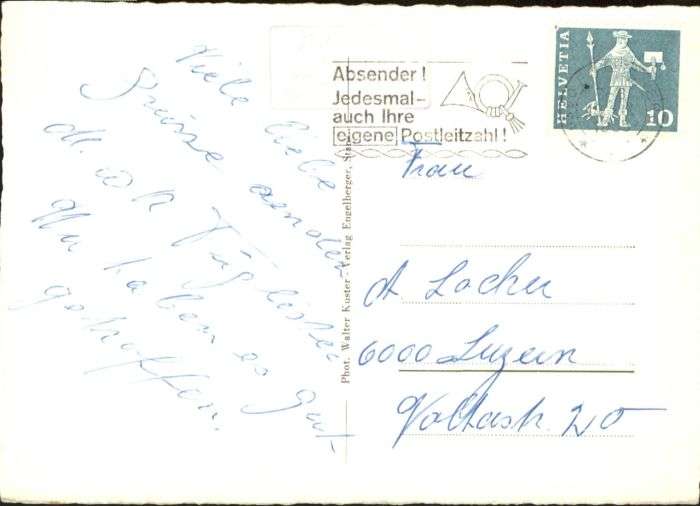 Viele liebe
Grüsse senden
Wir haben es gut
getroffen.
Phot. Walter Kuster - Verlag Engelberger, Stans
Absender!
Jedesmal-
auch Ihre
eigene Postleitzahl!
HELVETIA
10
Frau
A Locher
6000 Luzern
Voltastr. 20